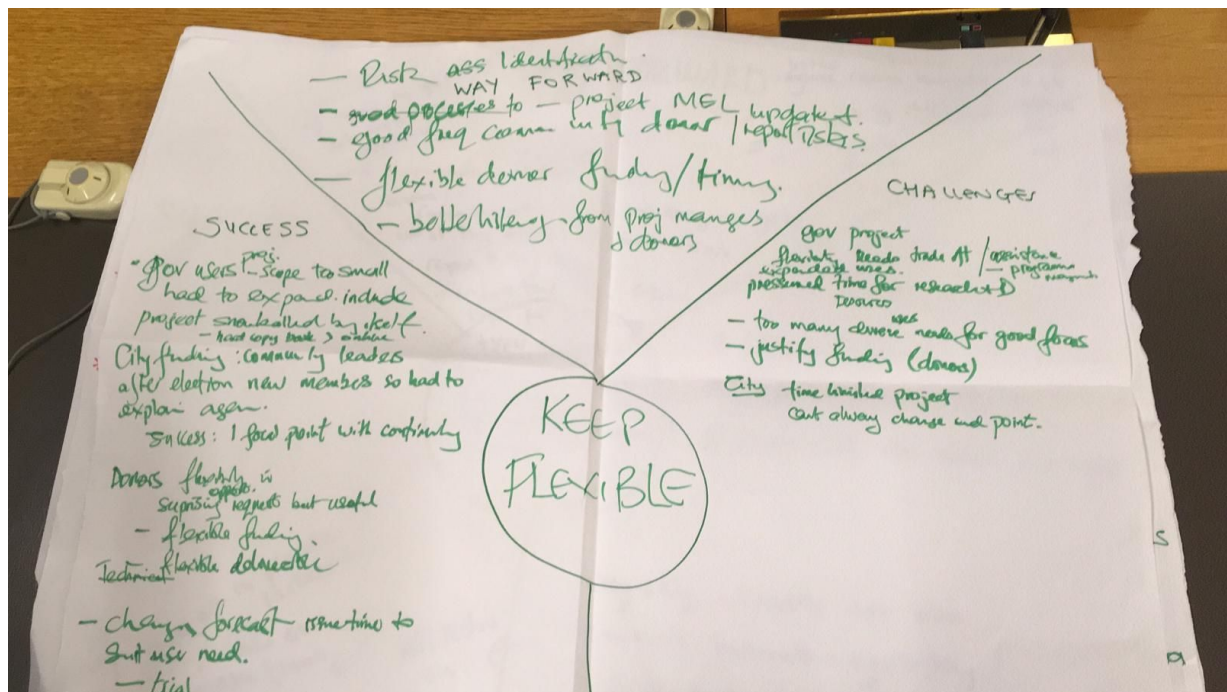 — Risk ass Identificatn
WAY FORWARD
— good processes to — project MEL update
— good freq comm with donor / report risks
— flexible donor funding / timing.
— from proj manges
& donors
SUCCESS
Gov users proj. - scope too small
had to expand include
project snowballed by itself.
- hard copy book > online
City funding : community leaders
after election new members so had to
explain again.
Success: 1 focal point with continuity
Donors flexibility in
suprising requests but useful
— flexible funding.
Technical flexible
— change forecast issue time to
suit user need.
— trial
CHALLENGES
gov project
flexibility needs trade off / assistance
— programme
pressured time for research + D
resources
— too many diverse needs for good focus
— justify funding (donors)
City time limited project
cant always change end point.
KEEP
FLEXIBLE
S